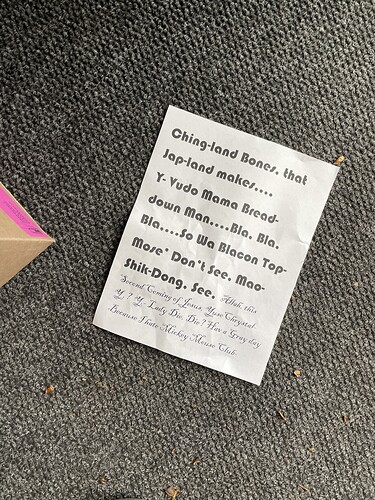 Ching-land Bones. that
Jap-land makes....
Y- Vudo Mama Bread-
down Man....Bla. Bla.
Bla....So Wa Blacon Top-
Mose* Don't See. Mao-
Shik-Dong. See. *With this
Second Coming of Jesus. Yese Chrystal
Y? Y. Lady Die Die? Hav a Gray day
Because I hate Mickey Mouse Club.